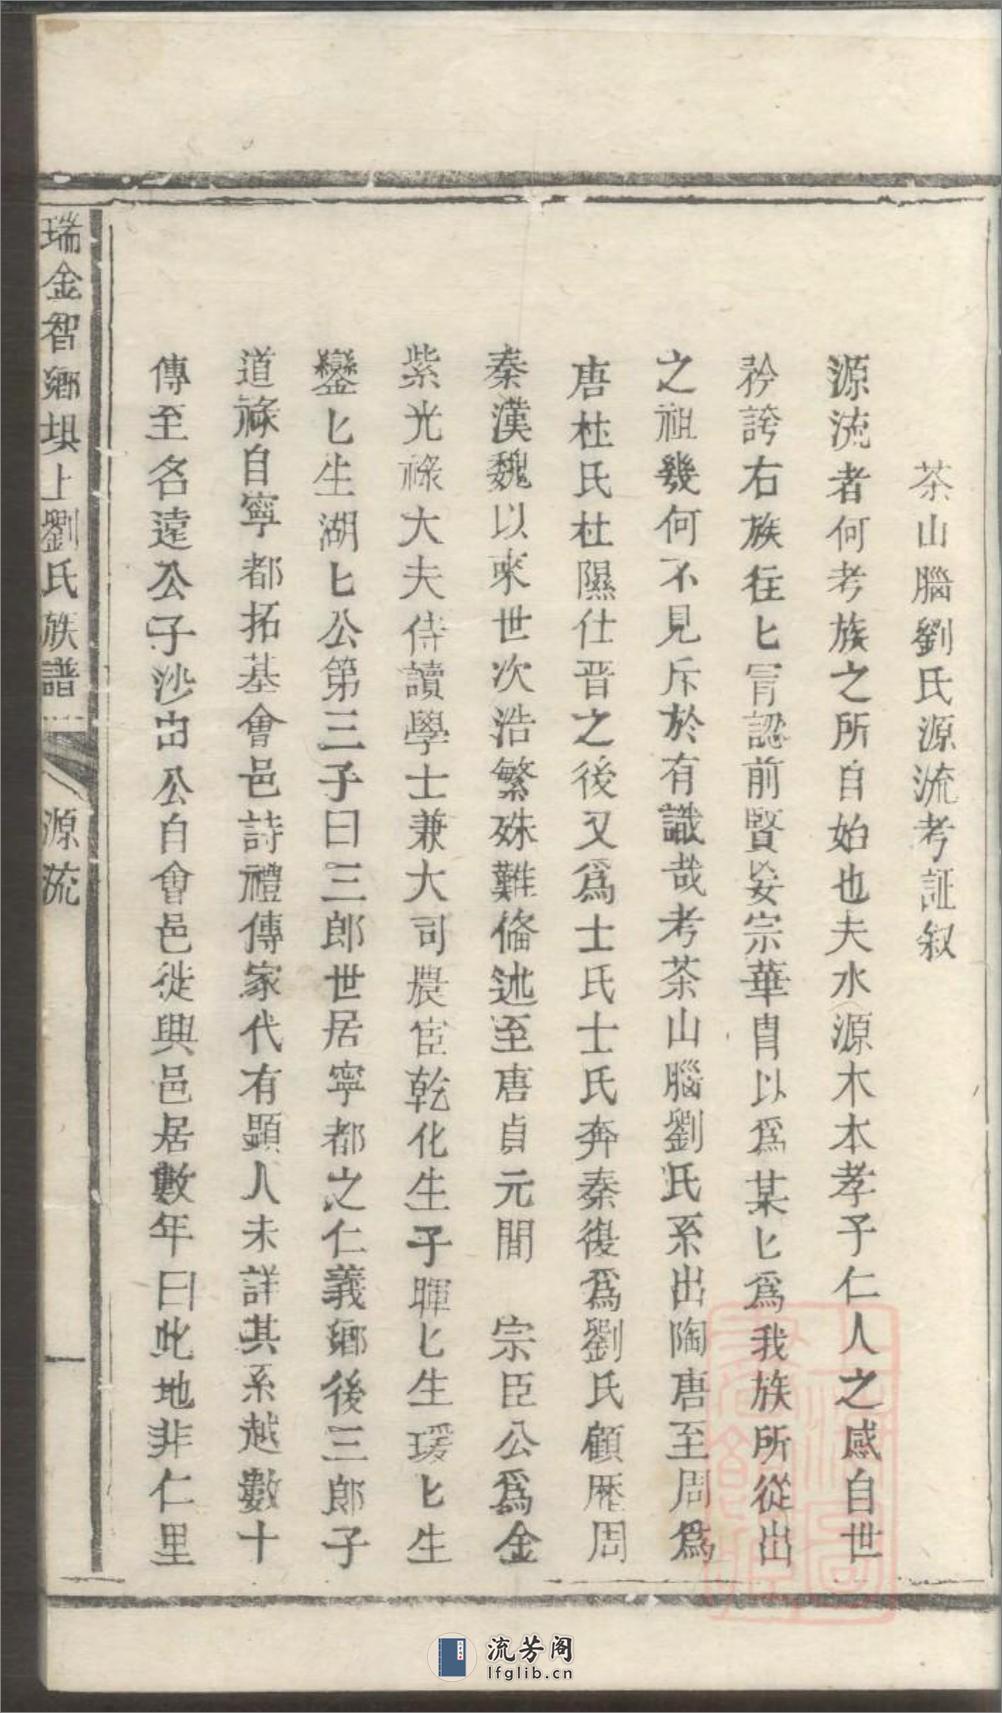 茶山腦劉氏源流考証叙
源流者何考族之所自始也夫水源木本孝子仁人之感自世
矜誇右族往匕冐認前賢妄宗華胄以爲某匕爲我族所從出
之祖幾何不見斥於有識哉考茶山腦劉氏系出陶唐至周爲
唐杜氏杜隰仕晋之後又爲士氏士氏奔秦復爲劉氏顧歷周
秦漢魏以來世次浩繁殊難俻述至唐貞元間 宗臣公爲金
紫光祿大夫侍讀學士兼大司農宦乾化生子暉匕生瑗匕生
鑾匕生湖匕公第三子曰三郎世居寧都之仁義鄉後三郎子
道祿自寧都拓基會邑詩禮傳家代有顯人未詳其系越數十
傳至名遠公子沙出公自會邑徙興邑居數年曰此地非仁里
瑞金智鄉垻上劉氏族譜 源流 一
流芳阁
lfglib.cn